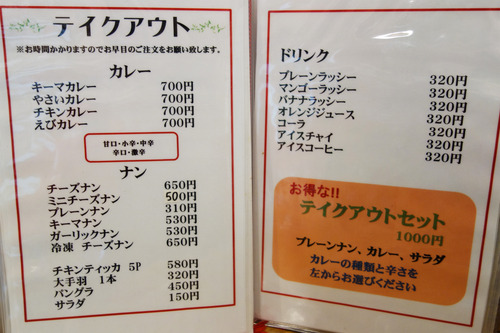 テイクアウト
※お時間かかりますのでお早目のご注文をお願い致します。
カレー
キーマカレー 700円
やさいカレー 700円
チキンカレー 700円
えびカレー 700円
甘口・小辛・中辛
辛口・激辛
ナン
チーズナン 650円
ミニチーズナン 500円
プレーンナン 310円
キーマナン 530円
ガーリックナン 530円
冷凍 チーズナン 650円
チキンティッカ 5P 580円
大手羽 1本 320円
パングラ 450円
サラダ 150円
ドリンク
プレーンラッシー 320円
マンゴーラッシー 320円
バナナラッシー 320円
オレンジジュース 320円
コーラ 320円
アイスチャイ 320円
アイスコーヒー 320円
お得な!!
テイクアウトセット
1000円
プレーンナン、カレー、サラダ
カレーの種類と辛さを
左からお選びください